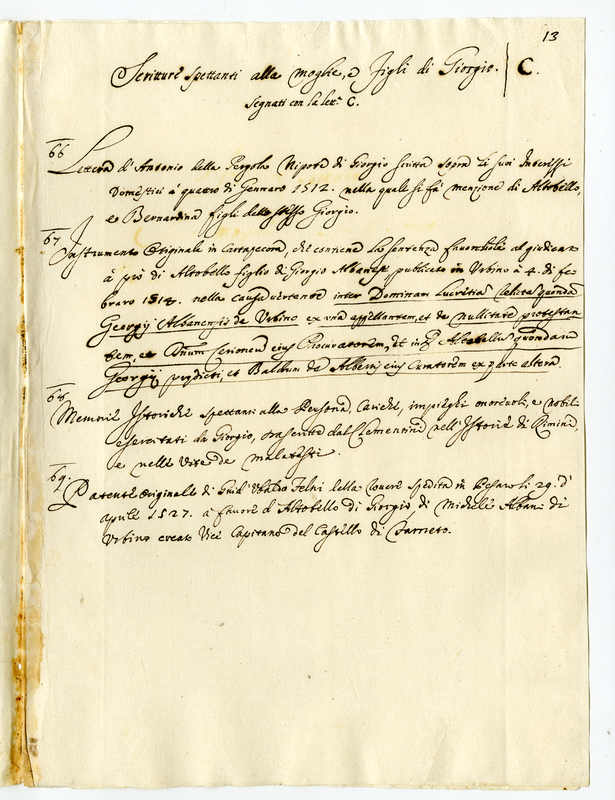 13
Scritture spettanti alla moglie, e figli di Giorgio. C.
segnati con la lett.ª C.
66
Lettera d'Antonio della Pergola Nipote di Giorgio scritta sopra li suoi Interessi
Domestici a' quattro di Gennaro 1512. nella quale si fa' menzione di Altobello,
e Bernardina figli dello stesso Giorgio.
67
Instrumento Originale in Cartapecora, che contiene la sentenza favorabile al
à prò di Altobello figlio di Giorgio Albanese publicato in Urbino à 4. di fe-
braro 1517. nella causa vertente inter Dominam Lucretia relicta quonda
Georgij Albanensis de Urbino ex una appellantem, et de nullitate protestan
tem, et eius Procuratorem, et in Altobellu quondam
Georgij predicti, et Baldum de Alberis eius Curatorem ex parte altera.
68
Memorie Istoriche spettanti alla Persona, Cariche, impieghi onorevoli, e nobili
esercitati da Giorgio, trascritte dal Clementini nell'Istorie di Rimini,
e nelle Vite de Malatesti.
69.
Patente Originale di Guid' Ubaldo Feltri della Rovere spedita in Pesaro li 29. d'
aprile 1527. a favore d'Altobello di Giorgio, di Michele Albani di
Urbino creato Vice Capitano del Castello di